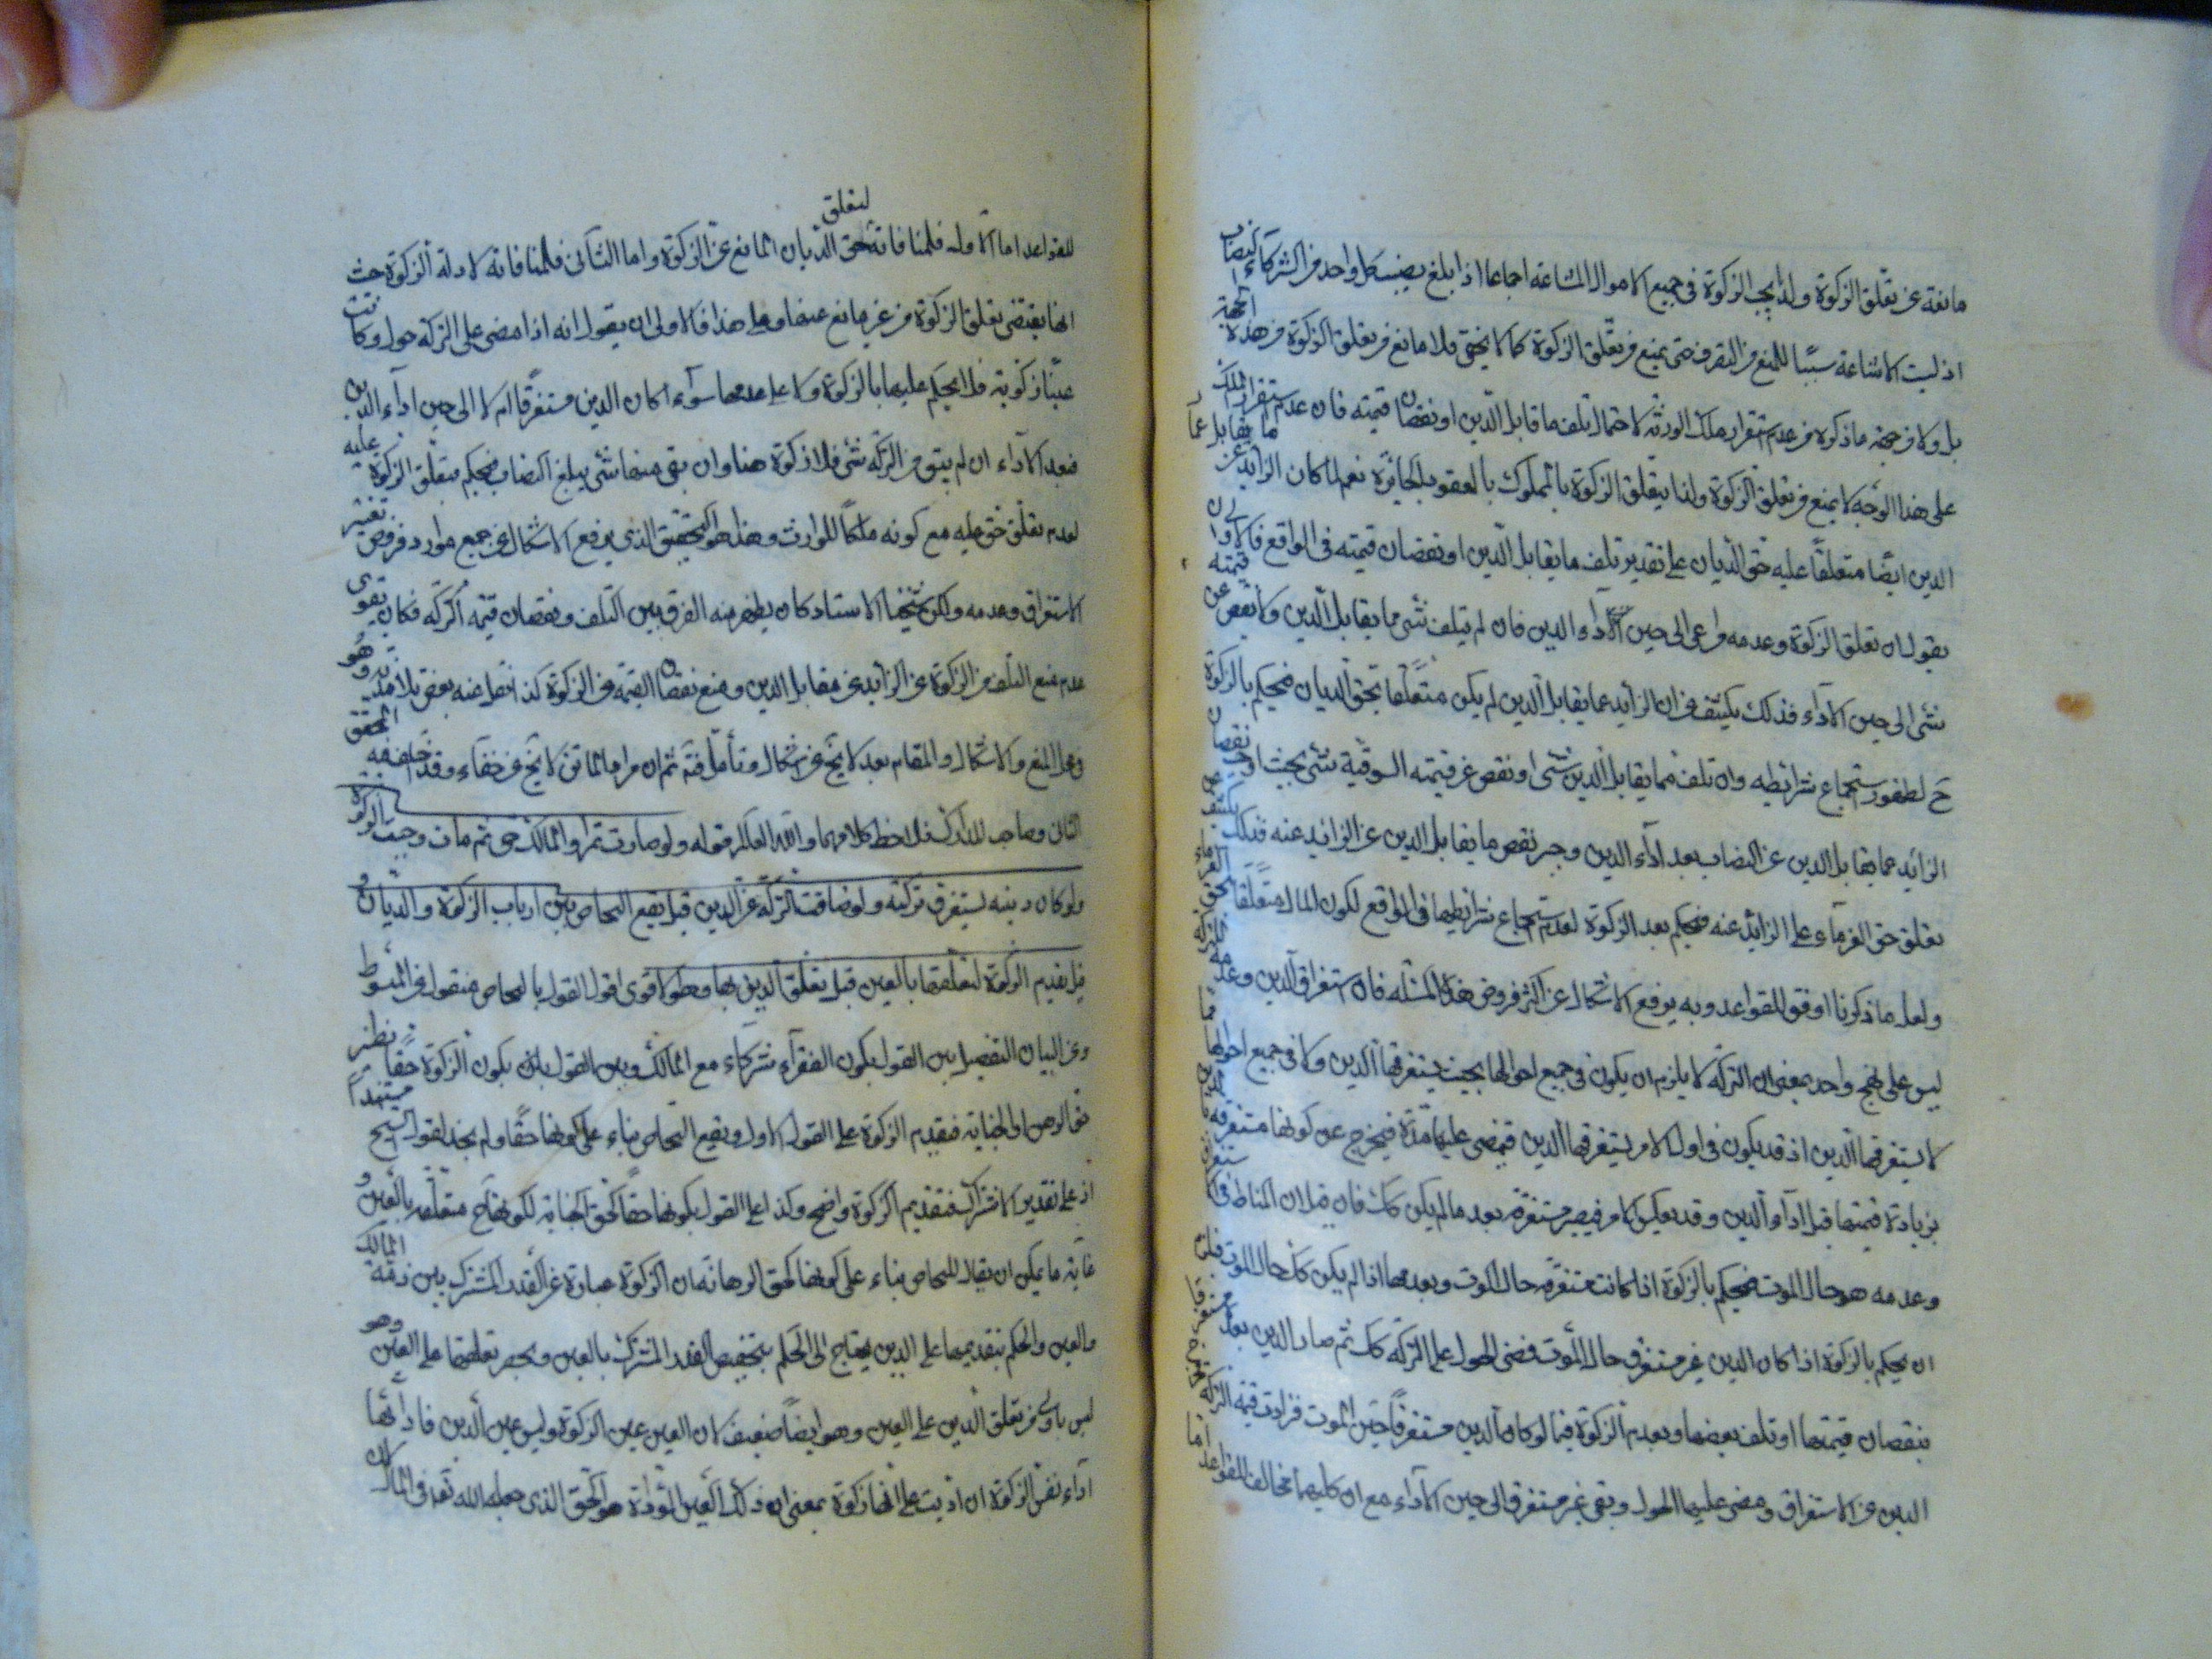 مانعة عن تعلق الزكوة ولذا يجب الزكوة في جميع الاموال المشاعة اجماعا اذا بلغ نصيب كل واحد من الشركاء النصاب
اذ ليست الاشاعة سببا للمنع من التصرف حتى يمنع من تعلق الزكوة كما لا يخفى فلا مانع من تعلق الزكوة من هذه الجهة
بل ولا من جهة ما ذكره من عدم استقرار ملك الورثة لاحتمال تلف ما قابل الدين او نقصان قيمته فان عدم استقرار الملك
على هذا الوجه لا يمنع من تعلق الزكوة ولذا يتعلق الزكوة بالمملوك بالعقود الجائزة نعم لما كان الزايد عما يقابل
الدين ايضا متعلقا عليه حق الديان على تقدير تلف ما يقابل الدين او نقصان قيمته في الواقع فالاولى ان
يقول ان تعلق الزكوة وعدمه مراعى الى حين الاداء الدين فان لم يتلف شئ مما يقابل الدين ولا نقص عن قيمته
شئ الى حين الاداء فذلك يكشف عن ان الزايد عما يقابل الدين لم يكن متعلقا بحق الديان فيحكم بالزكوة
ح لظهور استجماع شرائطه وان تلف مما يقابل الدين شئ او نقص عن قيمته السوقية شئ بحيث اوجب نقصان
الزائد عما يقابل الدين عن النصاب بعد اداء الدين وجبر نقص ما يقابل الدين عن الزايد عنه فذلك يكشف عن
تعلق حق الغرماء على الزائد عنه فيحكم بعد الزكوة لعدم استجماع شرائطها في الواقع لكون المال متعلقا لحق الغرماء
ولعل ما ذكرنا اوفق للقواعد وبه يرفع الاشكال عن اكثر فروض هذه المسئلة فان استغراق الدين وعدمه
ليس على نهج واحد بمعنى ان التركة لا يلزم ان يكون في جميع احوالها بحيث يستغرقها الدين ولا في جميع احوالها مما
لا يستغرقها الدين اذ قد يكون في اول الامر يستغرقها الدين فيمضى عليها مدة فيخرج عن كونها مستغرقة
بزيادة قيمتها قبل اداء الدين وقد يعكس الامر فيصير مستغرقة بعد ما لم يكن كك فان قيل ان المناط في
وعدمه هو حال الموت فيحكم بالزكوة اذا كانت مستغرقة حال الموت وبعدمها اذا لم يكن كك حال الموت
ان يحكم بالزكوة اذا كان الدين غير مستغرق حال الموت فمضى الحول على التركة كك ثم صار الدين بعد
بنقصان قيمتها او تلف بعضها وبعدم الزكوة فيما لو كان الدين مستغرقا حين الموت فزادت قيمة التركة
الدين عن الاستغراق ومضى عليها الحول وبقى غير مستغرق الى حين الاداء مع ان كليهما مخالف للقواعد اما
لتعلق
للقواعد اما الاول فلمنافاته حق الديان المانع عن الزكوة واما الثاني فلمنافاته لادلة الزكوة حيث
انها يقتضى تعلق الزكوة من غير مانع عنها وعلى هذا فالاولى ان يقول انه اذا مضى على التركة حول وكانت
عينا زكوية فلا يحكم عليها بالزكوة ولا على عدمها سواء كان الدين مستغرقا ام لا الى حين اداء الدين
فبعد الاداء ان لم يبق من التركة شئ فلا زكوة هنا وان بقى منها شئ يبلغ النصاب فيحكم بتعلق الزكوة عليه
لعدم تعلق حق عليه مع كونه ملكا للوارث وهذا هو التحقيق الذي يرفع الاشكال عن جميع موارد فروض
الاستغراق وعدمه ولكن شيخنا الاستاد كان يظهر منه الفرق بين التلف ونقصان قيمة التركة فكان يقوى
عدم منع التلف من الزكوة عن الزائد عن مقابل الدين ومنع نقصان القيمة من الزكوة كذا نقل عنه بعض تلامذته وهو
والمقام بعد لا يخ عن اشكال وتأمل فتم ثم ان مراد الماتن لا يخ عن خفاء وقد خالف فيه المحقق
الثاني وصاحب المدارك فلاحظ كلامهما والله العالم قوله ولو صارت تمرا والمالك حى ثم مات وجبت الزكوة
ولو كان دينه يستغرق تركته ولو ضاقت التركة عن الدين قيل يقع التحاص بين ارباب الزكوة والديان و
قيل يقدم الزكوة لتعلقها بالعين قبل تعلق الدين بها وهو الاقوى اقول القول بالتحاص منقول عن المبسوط
وعن البيان التفصيل بين القول بكون الفقراء شركاء مع المالك وبين القول بان يكون الزكوة حقا نظير
حق الرهن او الجناية فيقدم الزكوة على القول الاول ويقع التحاص بناء على كونها حقا ولم نجد لقول الشيخ مستندا
اذ على تقدير الاشتراك فتقديم الزكوة واضح وكذا على القول بكونها حقا كحق الجناية لكونها ح متعلقه بالعين و
غاية ما يمكن ان يقال للتحاص بناء على كونها كحق الرهانة ان الزكوة عبارة عن القدر المشترك بين ذمة المالك
والعين والحكم بتقديمها على الدين يحتاج الى الحكم بتخصيص القدر المشترك بالعين وبحصر تعلقها على العين وهو
ليس باولى من تعلق الدين على العين وهو ايضا ضعيف لان العين عين الزكوة وليس عين الدين فاداؤها
اداء نفس الزكوة ان اديت على انها زكوة بمعنى ان ذلك العين المؤداة هو الحق الذي جعله الله تعه في المال